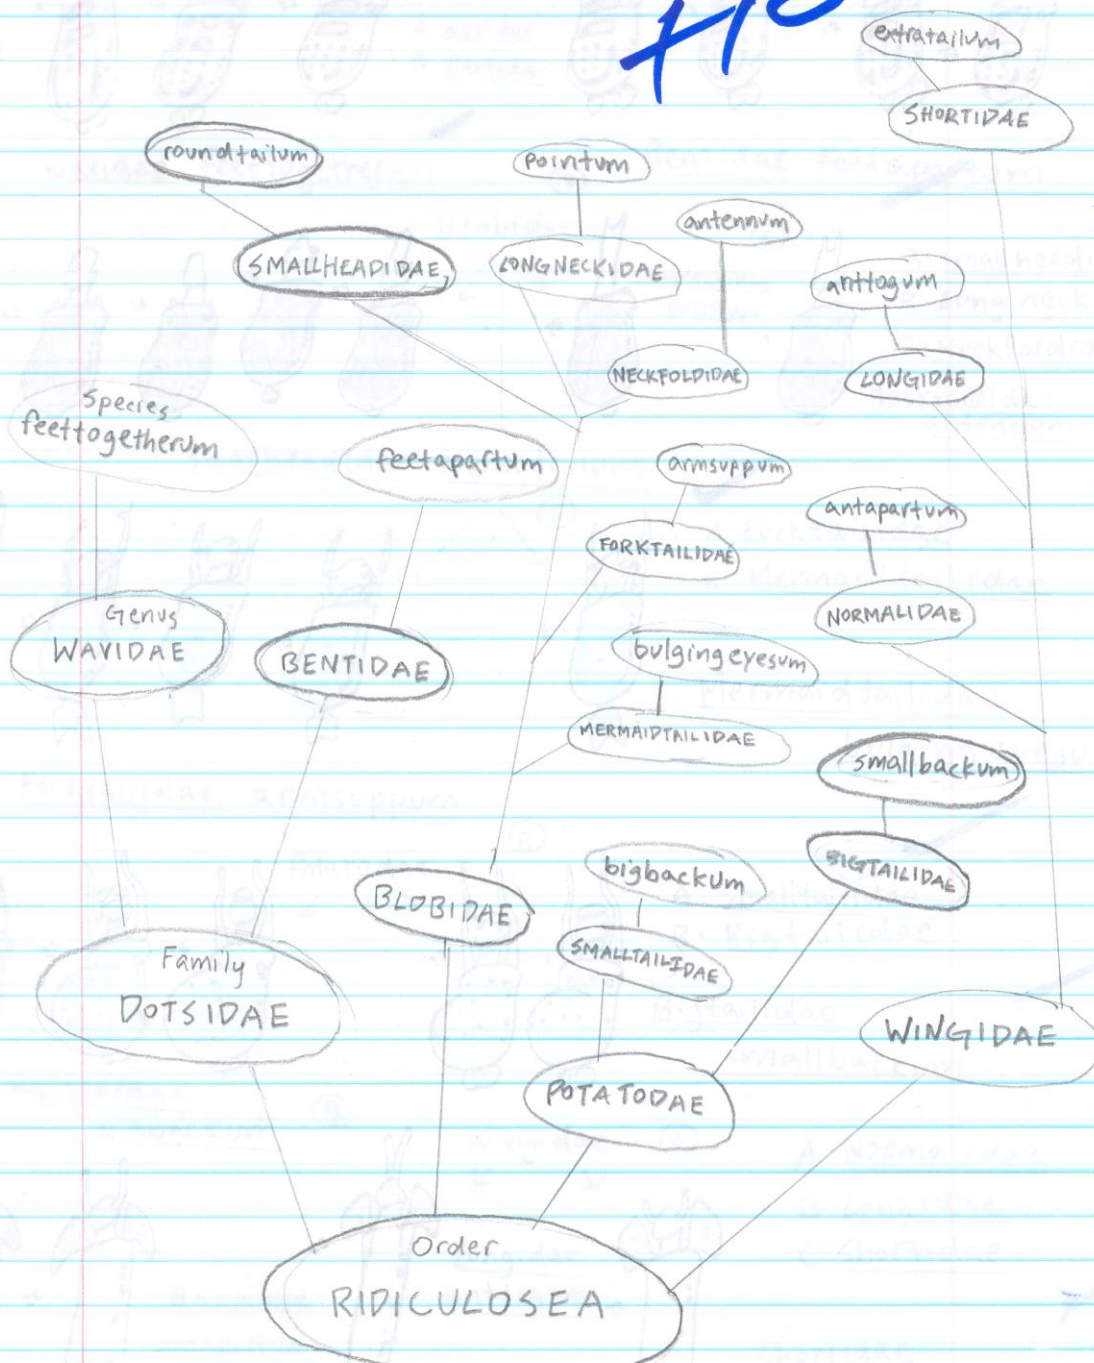 extratailum
SHORTIDAE
roundtailum
pointum
antennum
SMALLHEADIDAE
LONGNECKIDAE
anttagum
NECKFOLDIDAE
LONGIDAE
Species
feettogetherum
feetapartum
armsuppum
antapartum
FORKTAILIDAE
Genus
WAVIDAE
BENTIDAE
NORMALIDAE
bulgingeyesum
MERMAIDTAILIDAE
smallbackum
bigbackum
BIGTAILIDAE
BLOBIDAE
SMALLTAILIDAE
Family
DOTSIDAE
WINGIDAE
POTATODAE
Order
RIDICULOSEA